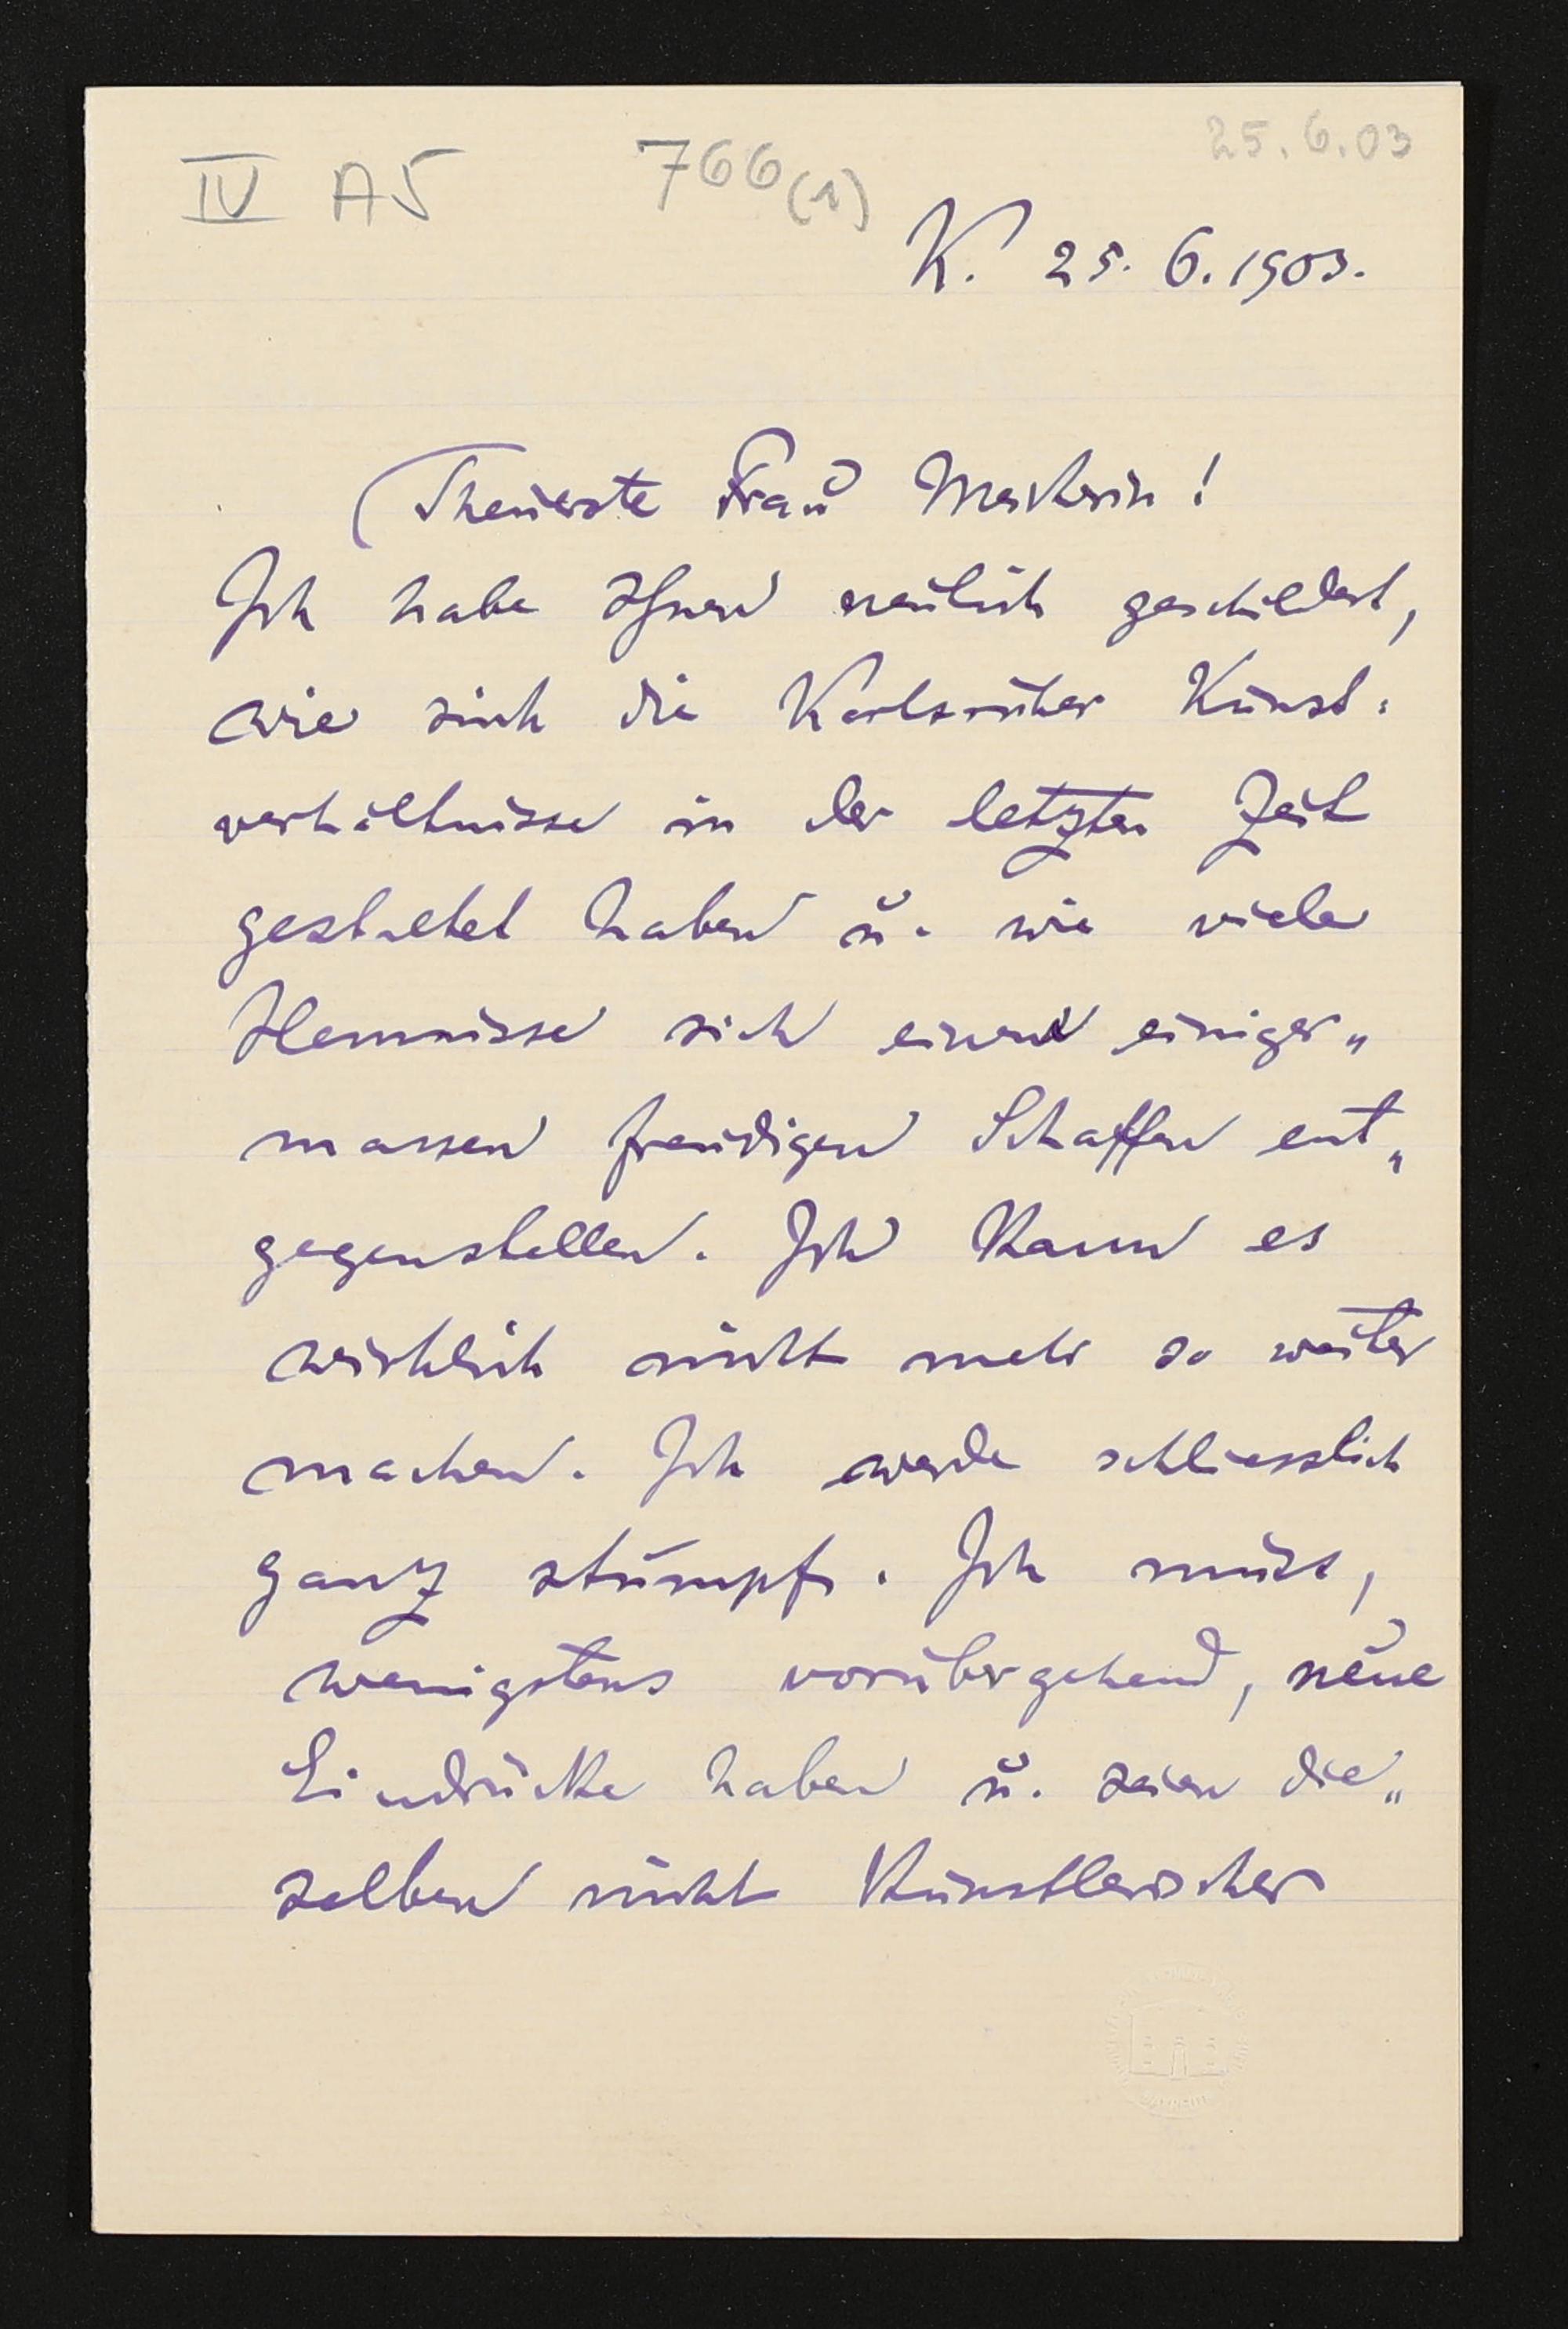 IV A5 766(1) 25.6.03
K. 25. 6. 1903.
Theuerste Frau Meisterin!
Ich habe Ihnen neulich geschildert,
wie sich die Karlsruher Kunst-
verhältnisse in der letzten Zeit
gestaltet haben u. wie viele
Hemnisse sich einem einiger„
massen freudigen Schaffen ent„
gegenstellen. Ich kann es
wirklich nicht mehr so weiter
machen. Ich werde schliesslich
ganz stumpf. Ich muss,
wenigstens vorübergehend, neue
Eindrücke haben u. seien die„
selben nicht künstlerischer